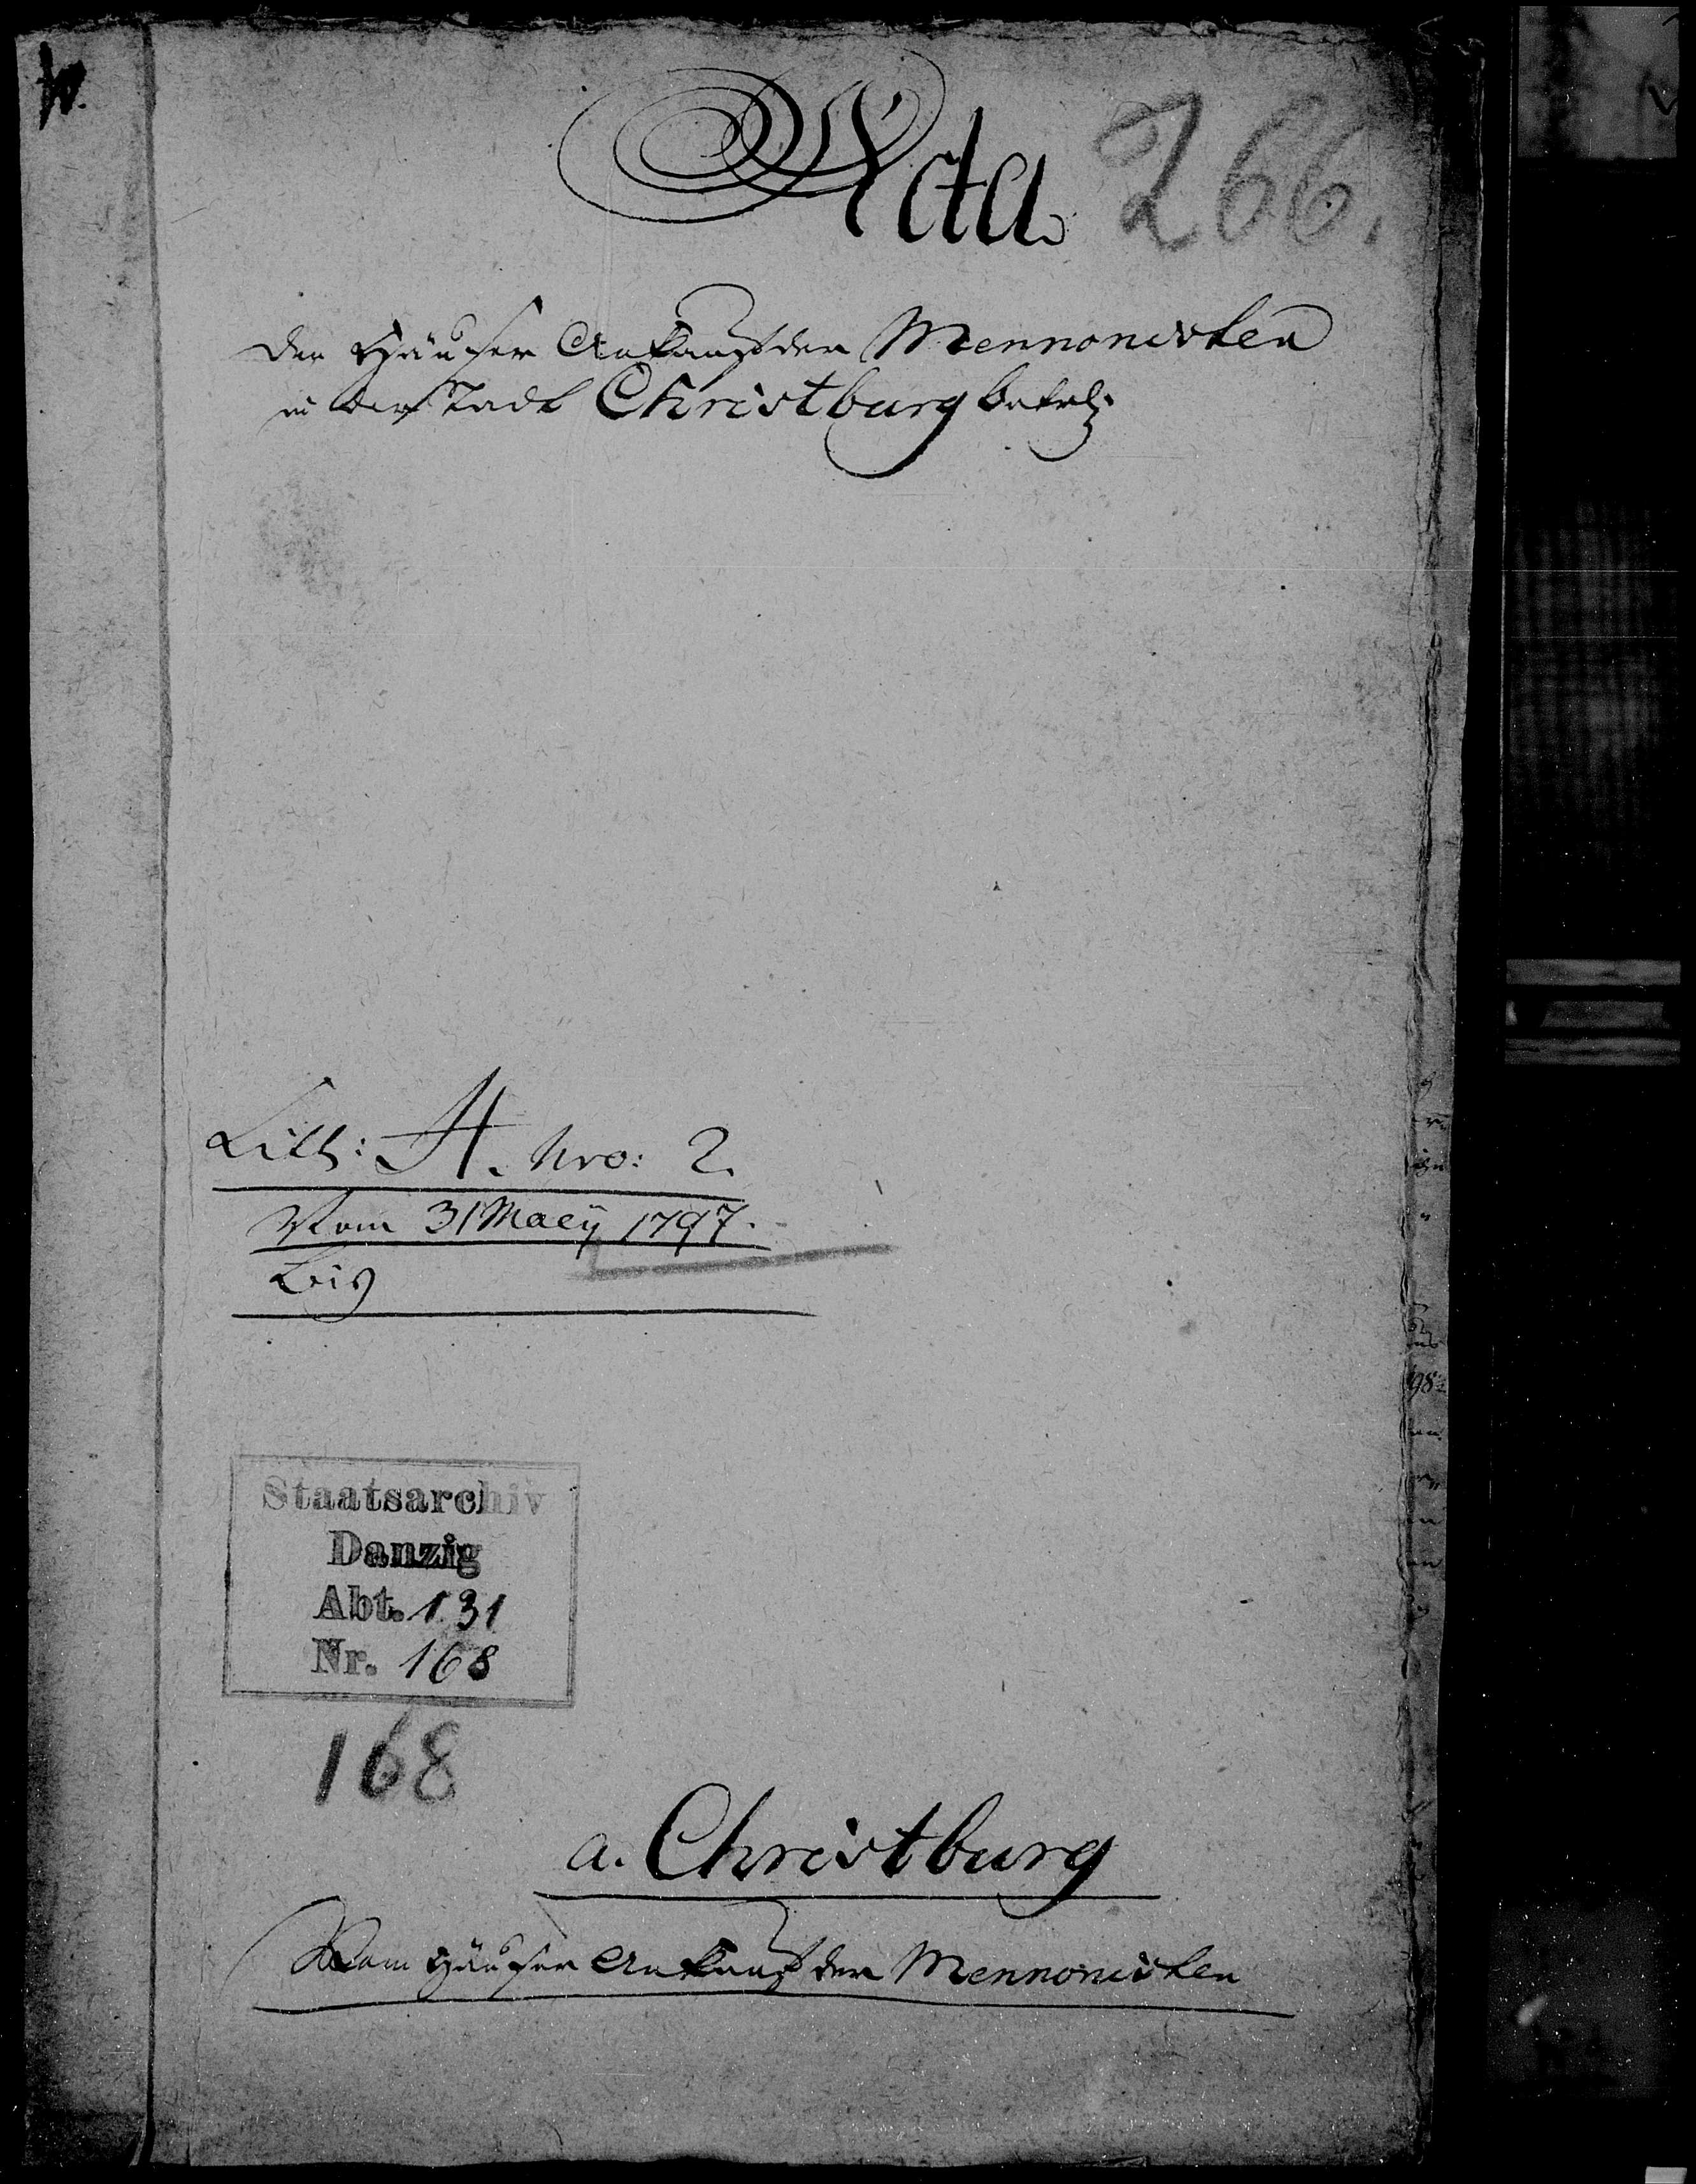 Acta 266.
den Häuser Ankauf der Mennonisten
in der Stadt Christburg betrf:
Litt: A. Nro: 2.
Vom 31 Maeÿ 1797.
bis
Staatsarchiv
Danzig
Abt. 131
Nr. 168
168
a. Christburg
Vom Häuser Ankauf der Mennonisten